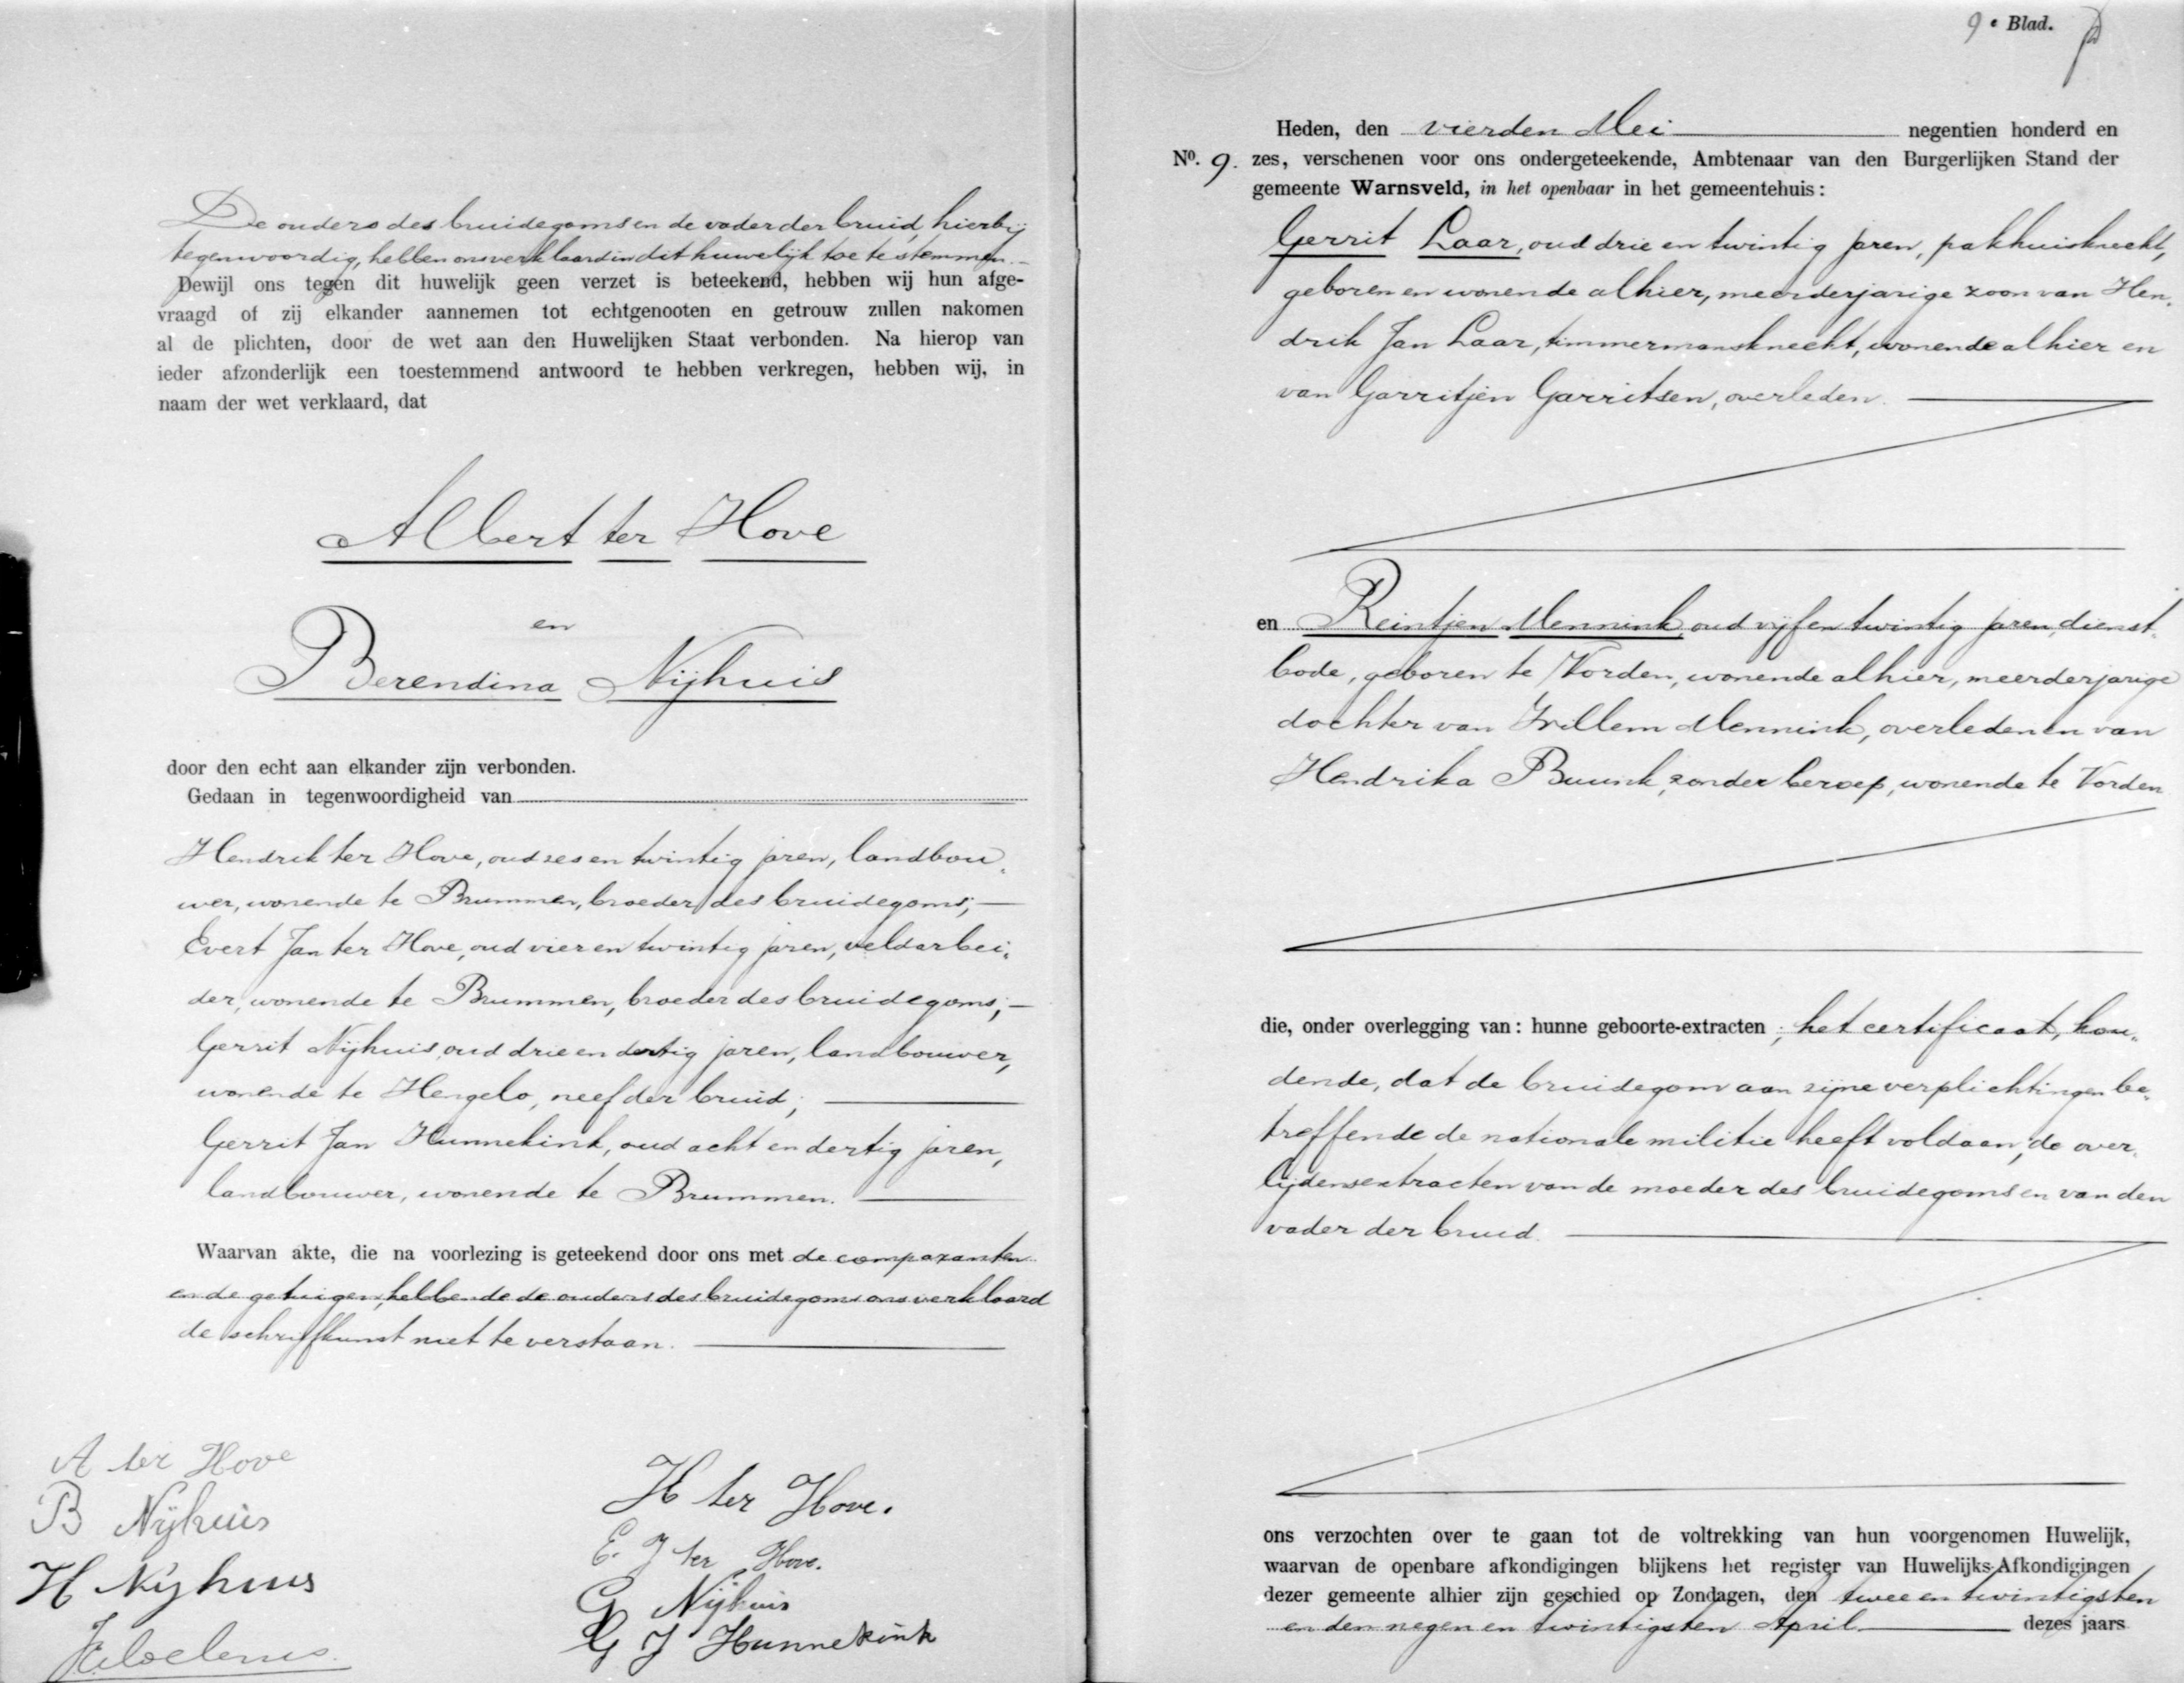 De ouders des bruidegoms en de vader der bruid, hierbij
tegenwoordig, hebben ons verklaard in dit huwelijk toe te stemmen.
Dewijl ons tegen dit huwelijk geen verzet is beteekend, hebben wij hun afge-
vraagd of zij elkander aannemen tot echtgenooten en getrouw zullen nakomen
al de plichten, door de wet aan den Huwelijken Staat verbonden. Na hierop van
ieder afzonderlijk een toestemmend antwoord te hebben verkregen, hebben wij, in
naam der wet verklaard, dat
Albert ter Hove
en
Berendina Nijhuis
door den echt aan elkander zijn verbonden.
Gedaan in tegenwoordigheid van
Hendrik ter Hove, oud zes en twintig jaren, landbou-
wer, wonende te Brummen, broeder des bruidegoms;
Evert Jan ter Hove, oud vier en twintig jaren, veldarbei-
der, wonende te Brummen, broeder des bruidegoms;
Gerrit Nijhuis, oud drie en dertig jaren, landbouwer,
wonende te Hengelo, neef der bruid;
Gerrit Jan Hunnekink, oud acht en dertig jaren,
landbouwer, wonende te Brummen.
Waarvan akte, die na voorlezing is geteekend door ons met de comparanten
en de getuigen, hebbende de ouders des bruidegoms ons verklaard
de schrijfkunst niet te verstaan.
A ter Hove
B Nijhuis
H Nijhuis
H ter Hove.
E. J ter Hove.
G Nijhuis
G J Hunnekink
9e Blad.
Heden, den vierden Mei negentien honderd en
No. 9. zes, verschenen voor ons ondergeteekende, Ambtenaar van den Burgerlijken Stand der
gemeente Warnsveld, in het openbaar in het gemeentehuis:
Gerrit Laar, oud drie en twintig jaren, pakhuisknecht,
geboren en wonende alhier, meerderjarige zoon van Hen-
drik Jan Laar, timmermansknecht, wonende alhier en
van Garritjen Garritsen, overleden.
en Reintjen Mennink, oud vijf en twintig jaren, dienst-
bode, geboren te Vorden, wonende alhier, meerderjarige
dochter van Willem Mennink, overleden en van
Hendrika Buunk, zonder beroep, wonende te Vorden
die, onder overlegging van: hunne geboorte-extracten; het certificaat, hou-
dende, dat de bruidegom aan zijne verplichtingen be-
treffende de nationale militie heeft voldaan, de over-
lijdensextracten van de moeder des bruidegoms en van den
vader der bruid.
ons verzochten over te gaan tot de voltrekking van hun voorgenomen Huwelijk,
waarvan de openbare afkondigingen blijkens het register van Huwelijks-Afkondigingen
dezer gemeente alhier zijn geschied op Zondagen, den twee en twintigsten
en den negen en twintigsten April dezes jaars